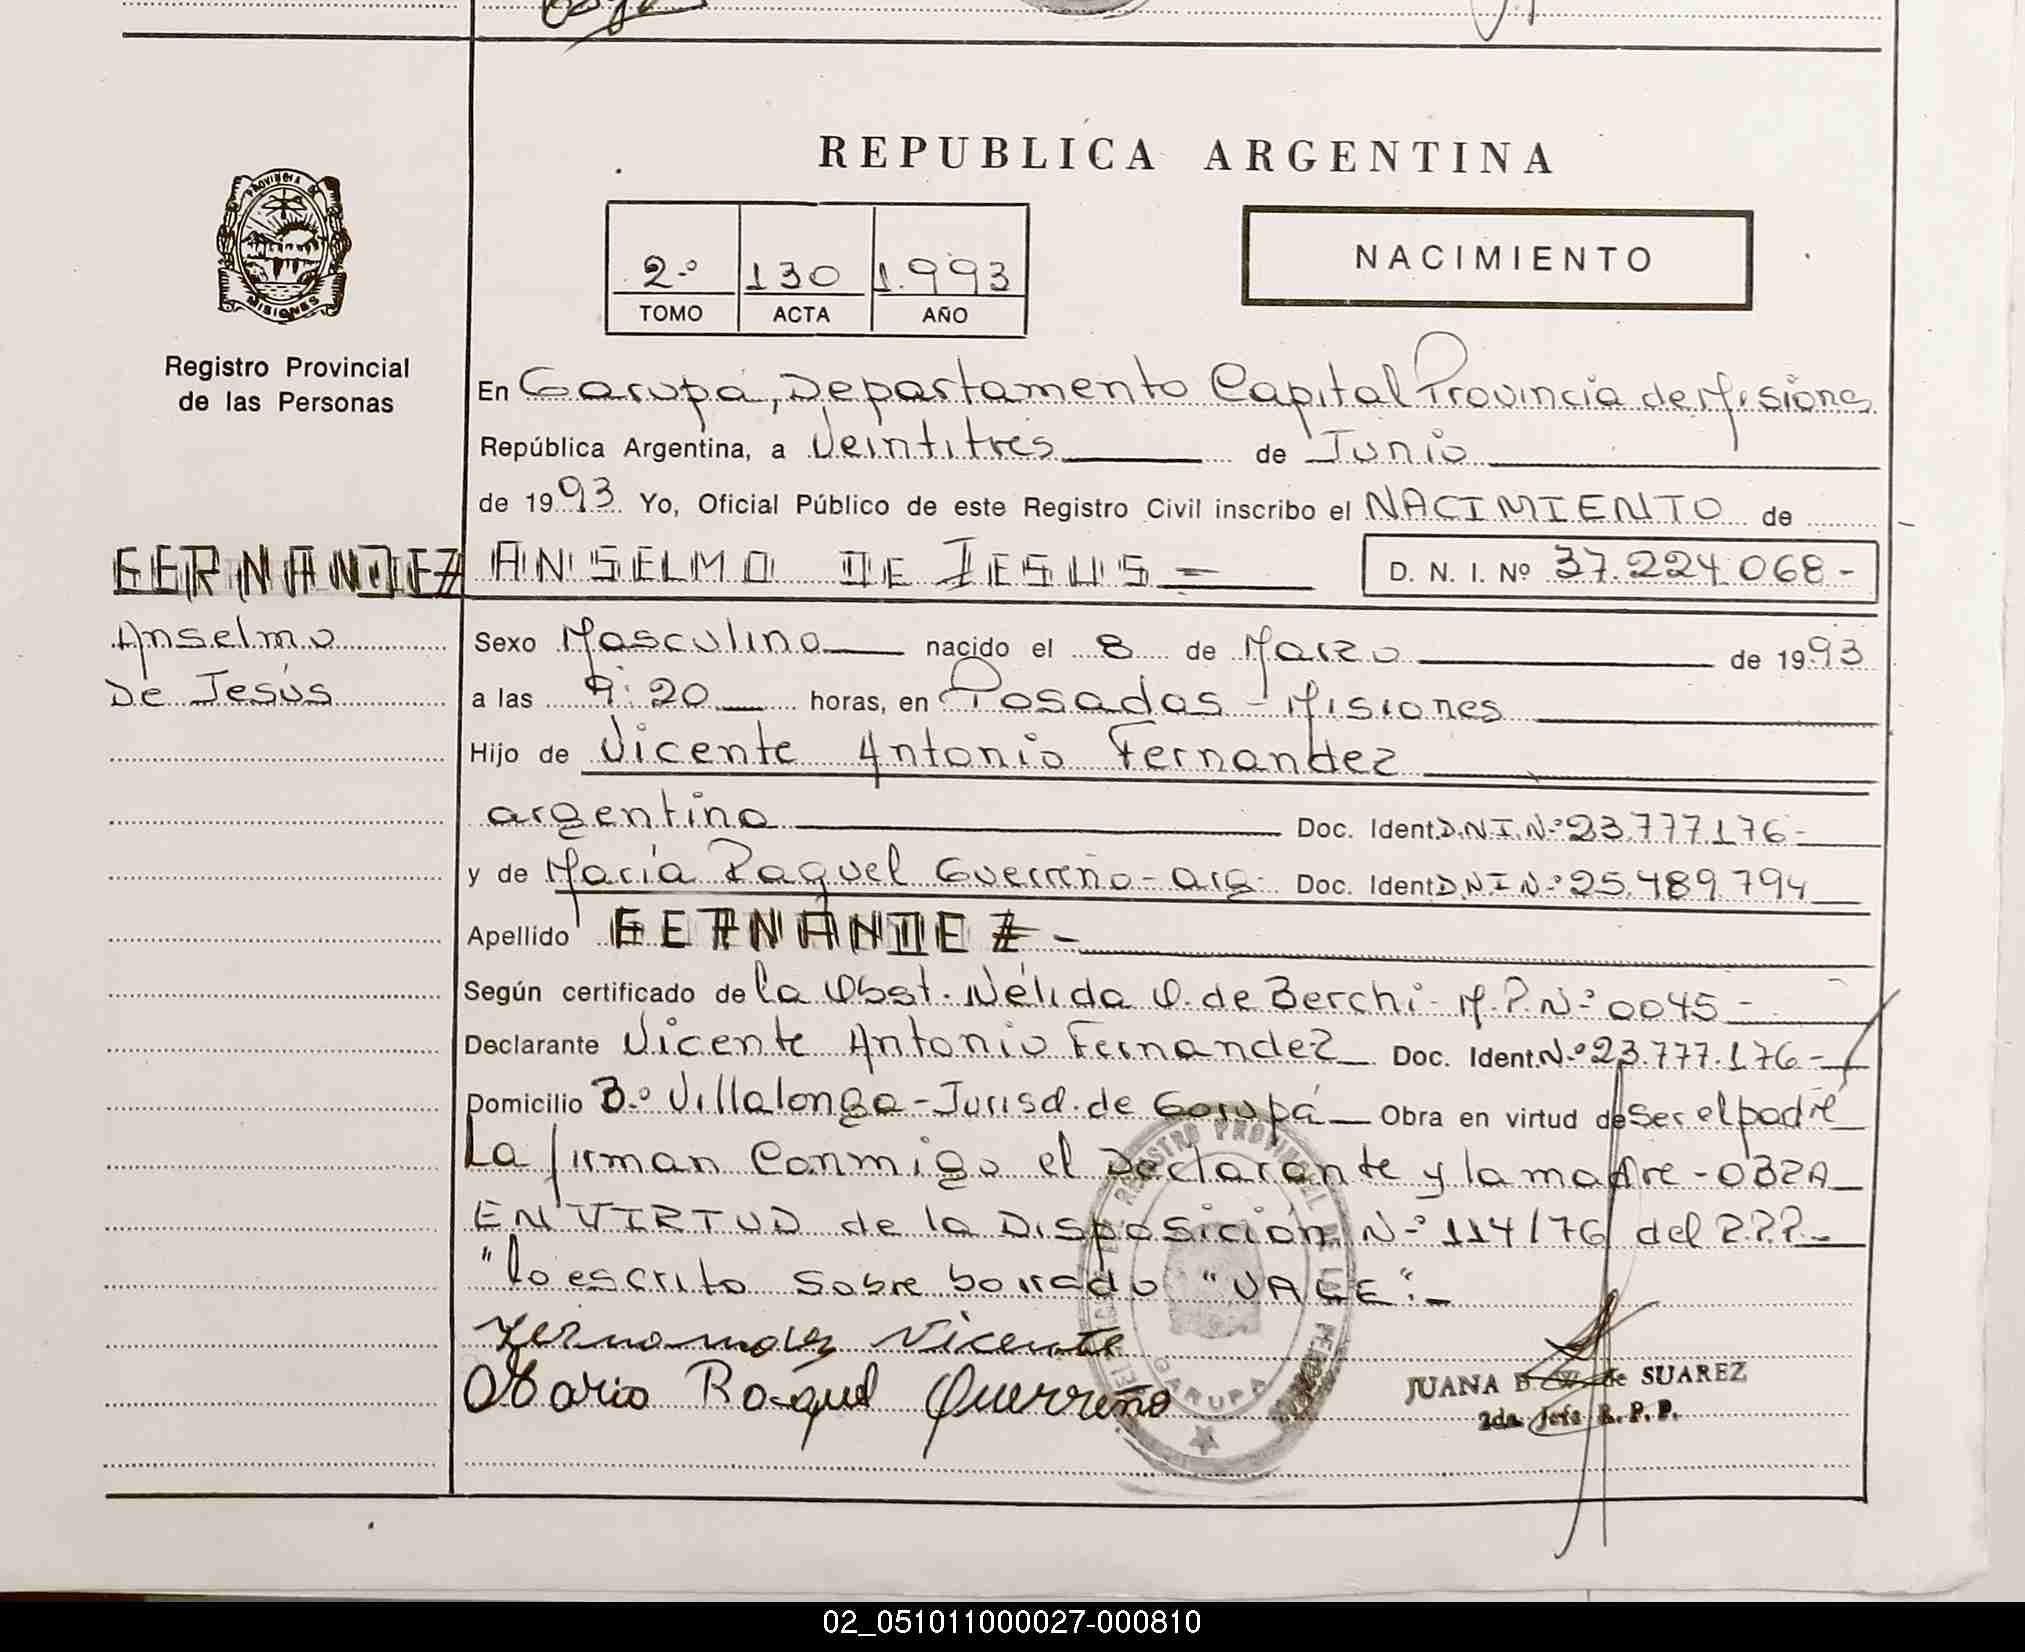 REPUBLICA ARGENTINA
PROVINCIA DE
MISIONES
2.º 130 1.993
TOMO ACTA AÑO
NACIMIENTO
Registro Provincial
de las Personas
En Garupá, Departamento Capital Provincia de Misiones
República Argentina, a Veintitrés de Junio
de 1993 Yo, Oficial Público de este Registro Civil inscribo el NACIMIENTO de
FERNANDEZ ANSELMO DE JESUS = D. N. I. Nº 37.224.068-
Anselmo
De Jesús
Sexo Masculino nacido el 8 de Marzo de 1993
a las 9:20 horas, en Posadas - Misiones
Hijo de Vicente Antonio Fernandez
argentino Doc. Ident. D.N.I.N.º 23.777.176-
y de María Raquel Guerreño - arg. Doc. Ident. D.N.I.N.º 25.489.794
Apellido FERNANDEZ -
Según certificado de la Obst. Nélida O. de Berchi - M.P.N.º 0045 -
Declarante Vicente Antonio Fernandez Doc. Ident. N.º 23.777.176-
Domicilio B.º Villalonga - Jurisd. de Garupá Obra en virtud de Ser el padre
La firman Conmigo el Declarante y la madre - OBRA
EN VIRTUD de la Disposición N.º 114/76 del R.P.P. -
"lo escrito sobre borrado "VALE". -
Fernandez Vicente
Maria Raquel Guerreño
REGISTRO PROVINCIAL DE LAS PERSONAS
GARUPA
JUANA B. de SUAREZ
2da. Jefa R. P. P.
02_051011000027-000810